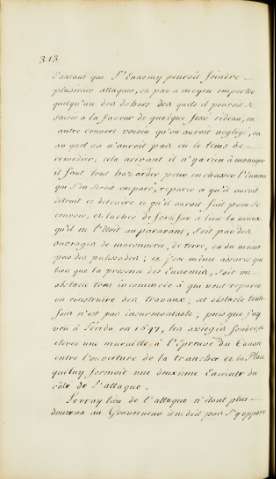 313
surtout que l'Ennemy pouroit feindre
plusieurs attaques, et par ce moyen emporter
quelqu'un des dehors des quels il pouroit se
saisir à la faveur de quelque
autre couvert voisin qu'on auroit negligé, ou
au quel on n'auroit pas eu le tems de
remedier, cela arrivant il n'y a rien à menager
il faut tout hazarder pour en chasser l'Ennemi
qui s'en seroit emparé, reparer ce qu'il auroit
détruit et découvrir ce qu'il auroit fait pour se
couvrir, et tacher de
qu'il ne l'étoit auparavant, soit par des
ouvrages de maconnerie, de terre, ou du moins
par des palissades; et j'en même assuré qu
bien que la presence des Ennemis, soit un
obstacle tres incommode à qui veut reparer
ou construire des travaux; cet obstacle toute
fois n'est pas insurmontable, puis que j'ay
veu à Lerida en 1647, les assiegés
elever une muraille à l'épreuve du Canon
entre l'ouverture de la tranchée et la Place
qui leur formoit une deuxieme Enceinte du
côté de l'attaque.
Le vray lieu de l'attaque n'étant plus
douteux au Gouverneur